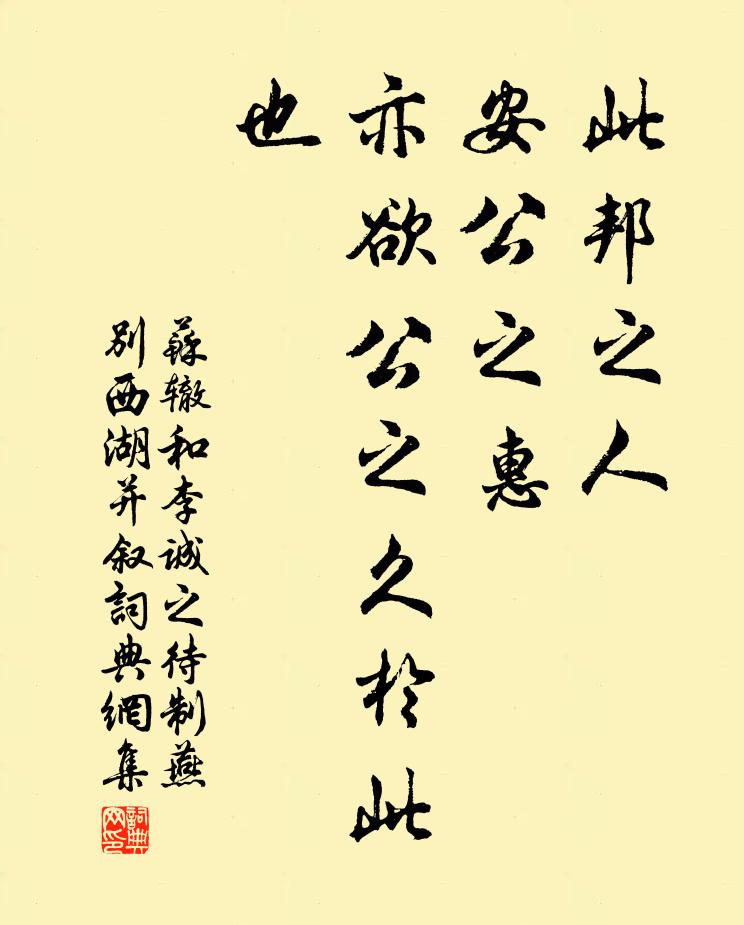 此邦之人
安公之惠
亦欲公之久於此
也
蘇辙和李诚之待制燕
别西湖并叙詞典網集
詞典
网印